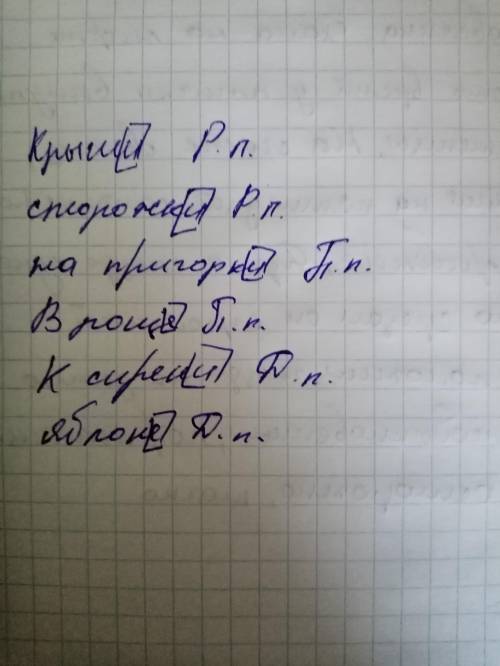 Крыши Р.п.
сторожки Р.п.
на пригорки П.п.
В роще П.п.
К сирени Д.п.
яблоне Д.п.